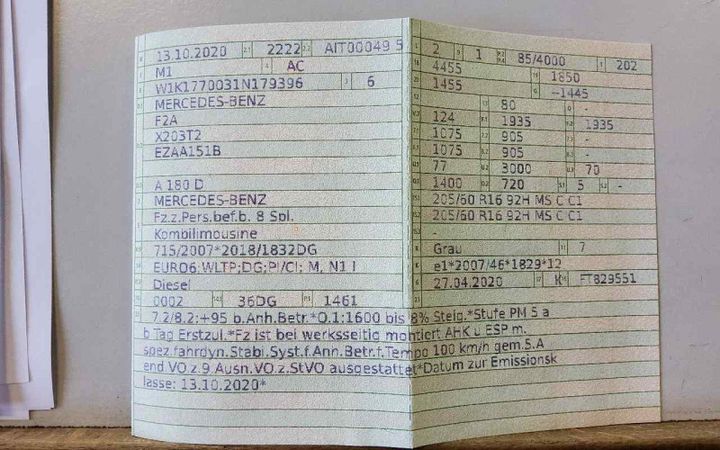 13.10.2020 2222 AIT00049 5
M1 AC
W1K1770031N179396 6
MERCEDES-BENZ
F2A
X203T2
EZAA151B
A 180 D
MERCEDES-BENZ
Fz.z.Pers.bef.b. 8 Spl.
Kombilimousine
715/2007*2018/1832DG
EURO6;WLTP;DG;PI/CI; M, N1 I
Diesel
0002 36DG 1461
2 1 85/4000 202
4455 1850
1455 -1445
80 -
124 1935 1935
1075 905 -
1075 905 -
77 3000 70
1400 720 5 -
205/60 R16 92H MS C C1
205/60 R16 92H MS C C1
Grau 7
e1*2007/46*1829*12
27.04.2020 K FT829551
7.2/8.2:+95 b.Anh.Betr.*O.1:1600 bis 8% Steig.*Stufe PM 5 a
b Tag Erstzul.*Fz ist bei werksseitig montiert AHK u ESP m.
spez.fahrdyn.Stabi.Syst.f.Anh.Betr.f.Tempo 100 km/h gem.5.A
end.VO.z.9.Ausn.VO.z.StVO ausgestattet*Datum zur Emissionsk
lasse: 13.10.2020*